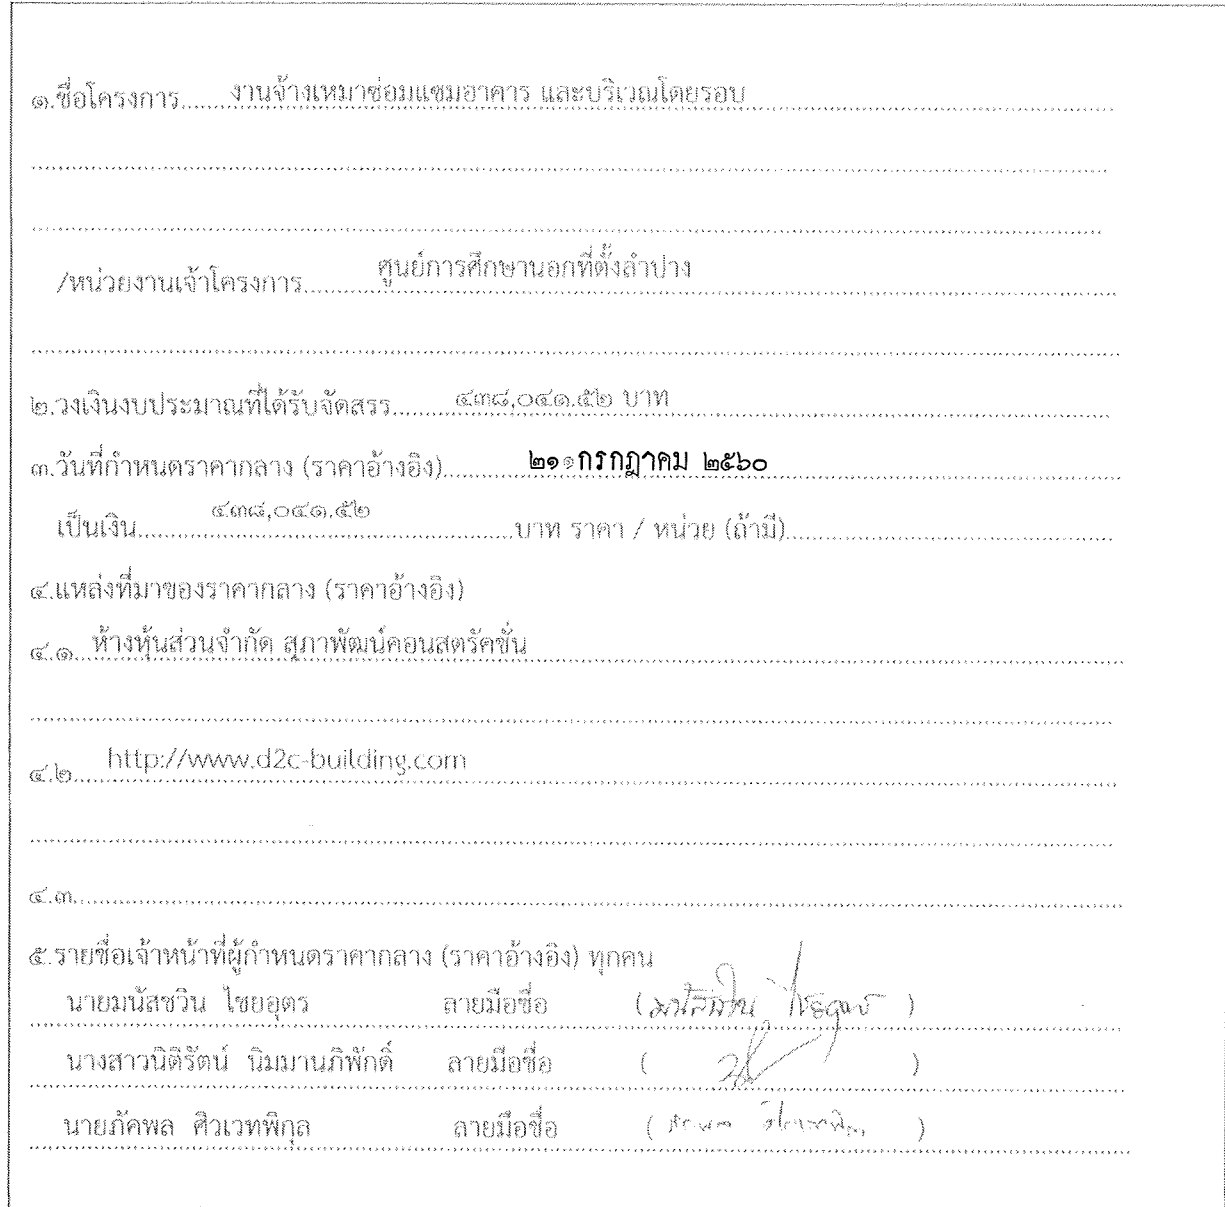 ๑.ชื่อโครงการ.......งานจ้างเหมาซ่อมแซมอาคาร และบริเวณโดยรอบ
/หน่วยงานเจ้าโครงการ............ศูนย์การศึกษานอกที่ตั้งลำปาง
๒.วงเงินงบประมาณที่ได้รับจัดสรร.........๔๓๘,๐๔๑.๕๒ บาท
๓.วันที่กำหนดราคากลาง (ราคาอ้างอิง)............๒๑ กรกฎาคม ๒๕๖๐
เป็นเงิน..........๔๓๘,๐๔๑.๕๒....................บาท ราคา / หน่วย (ถ้ามี)........................
๔.แหล่งที่มาของราคากลาง (ราคาอ้างอิง)
๔.๑ ห้างหุ้นส่วนจำกัด สุภาพัฒน์คอนสตรัคชั่น
๔.๒ http://www.d2c-building.com
๔.๓
๕.รายชื่อเจ้าหน้าที่ผู้กำหนดราคากลาง (ราคาอ้างอิง) ทุกคน
นายมนัสชวิน ไชยอุตร ลายมือชื่อ ( )
นางสาวนิติรัตน์ นิมมานภิพักดิ์ ลายมือชื่อ ( )
นายภัคพล ศิวเวทพิกุล ลายมือชื่อ ( )